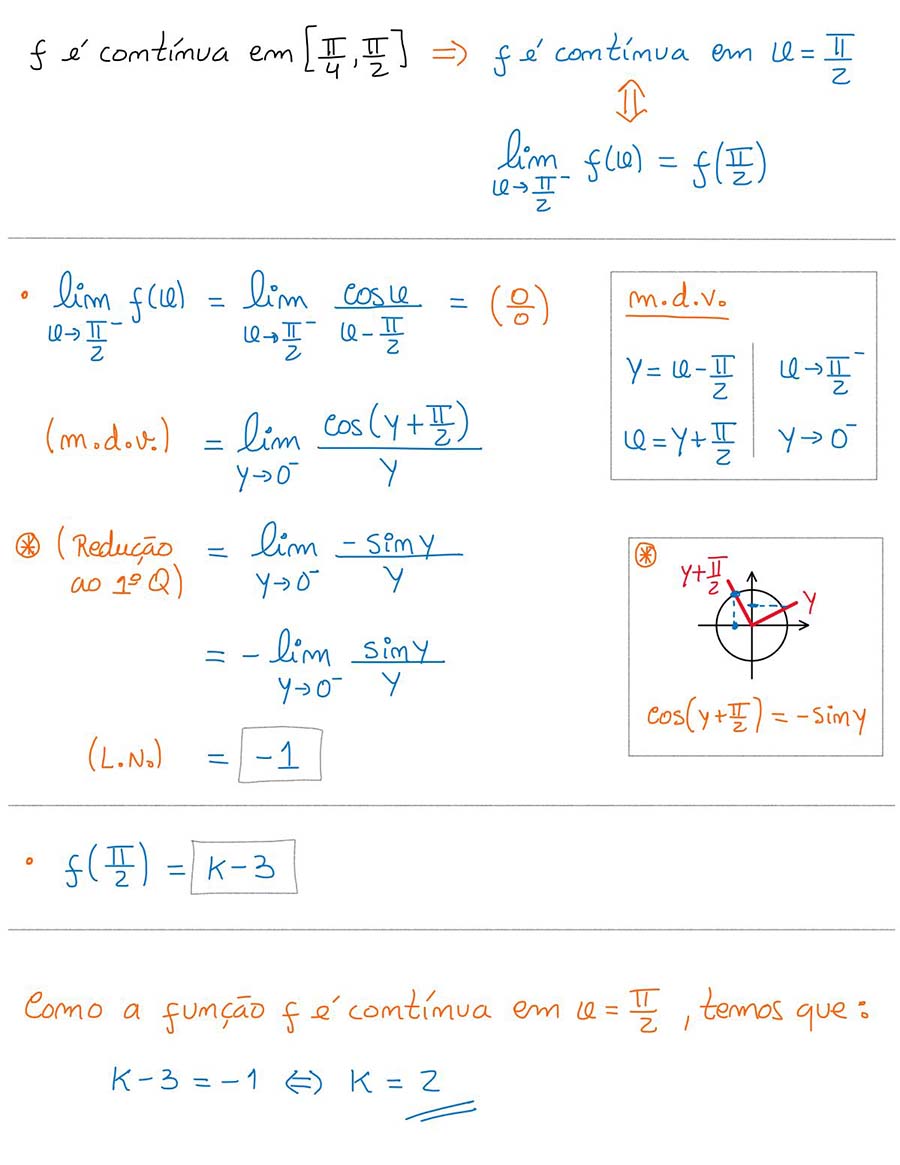 f é contínua em [π/4, π/2] ⇒ f é contínua em x = π/2
⇕
lim x→π/2⁻ f(x) = f(π/2)
• lim x→π/2⁻ f(x) = lim x→π/2⁻ cosx / (x - π/2) = (0/0)
m.d.v.
y = x - π/2 | x→π/2⁻
x = y + π/2 | y→0⁻
(m.d.v.) = lim y→0⁻ cos(y + π/2) / y
⊛ (Redução ao 1º Q) = lim y→0⁻ -siny / y
= - lim y→0⁻ siny / y
(L.N.) = -1
⊛
y+π/2
y
cos(y+π/2) = -siny
• f(π/2) = K-3
Como a função f é contínua em x = π/2, temos que:
K-3 = -1 ⇔ K = 2